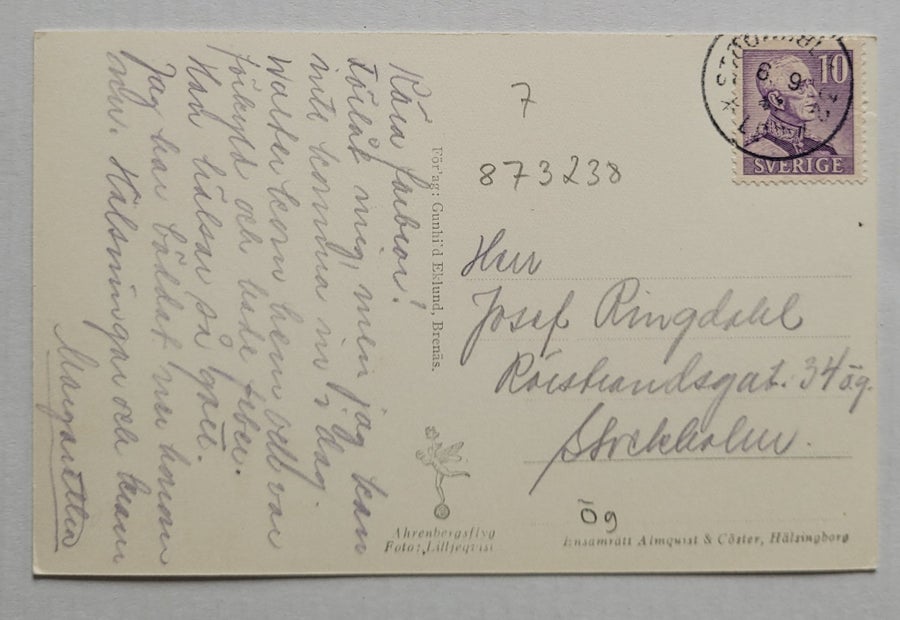 Kära farbror!
Förlåt mig, men jag kan
inte komma in i dag.
Walter kom hem och var
förkyld och hade feber.
Han hälsar så gott.
Jag har bäddat ner honom
nu. Hälsningar och kram
Margaretha
Förlag: Gunhild Eklund, Brenäs.
Ahrenbergsflyg
Foto: Lilljeqvist
7
873238
10
SVERIGE
Herr
Josef Ringdahl
Rörstrandsgat. 34 ög.
Stockholm.
ög
Ensamrätt Almquist & Cöster, Hälsingborg